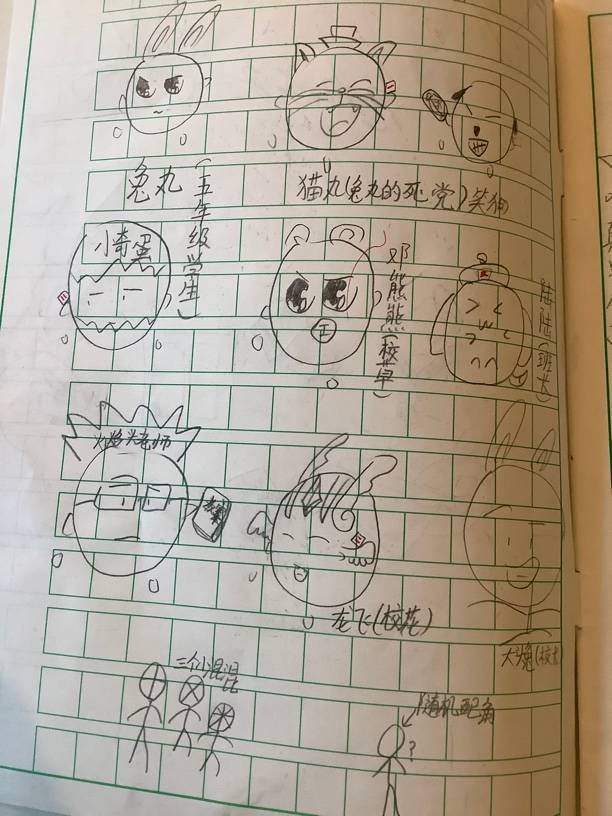 兔丸(五年级学生)
猫丸(兔丸的死党)
笑狗
小奇蛋
邓熊熊(校草)
陆陆(班长)
正
火焰头老师
龙飞(校花)
大兔(校
三个小混混
随机配角
?